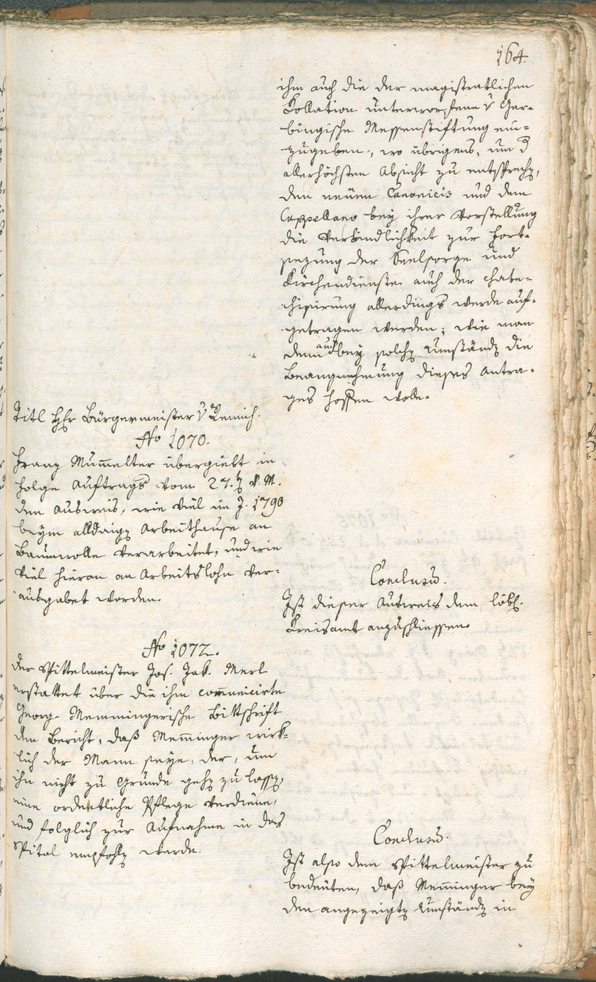 164.
ihm auch die der magistratlichen
Collation unterworfene v Ger-
bingische Messenstiftung ein-
zugeben, wo übrigens, um d
allerhöchsten Absicht zu entsprechen,
den neüen Canonicis und dem
Cappellano bey ihrer Vorstellung
die Verbindlichkeit zur Fort-
sezung der Seelsorge und
Kirchendienste auch der Cate-
chisirung allerdings werde auf-
getragen werden; wie man
dann auch bey solchen Umständen die
Begnehmung dieses Antra-
ges hoffen wolle.
Titl Hr Bürgermeister v Remich.
No 1070.
Franz Mumelter übergiebt in
Folge Auftrags vom 27. v. M.
den Ausweis, wie viel im J. 1790
beym alldaigen Arbeithause an
Baumwolle verarbeitet, und wie
viel hieran an Arbeitslohn ver-
ausgabet worden.
Conclusu.
Ist dieser Ausweis dem löbl.
Kreisamt anzuschliessen.
No 1072.
Der Spittelmeister Jos. Jak. Merl
erstattet über die ihm communicirte
Georg Memmingerische Bittschrift
den Bericht, daß Memminger wirk-
lich der Mann seye, der, um
ihn nicht zu Grunde gehen zu lassen,
eine ordentliche Pflege verdiene,
und folglich zur Aufnahme in das
Spital empfohlen werde.
Conclusu.
Ist also dem Spittelmeister zu
bedeuten, daß Memminger bey
den angezeigten Umständen in